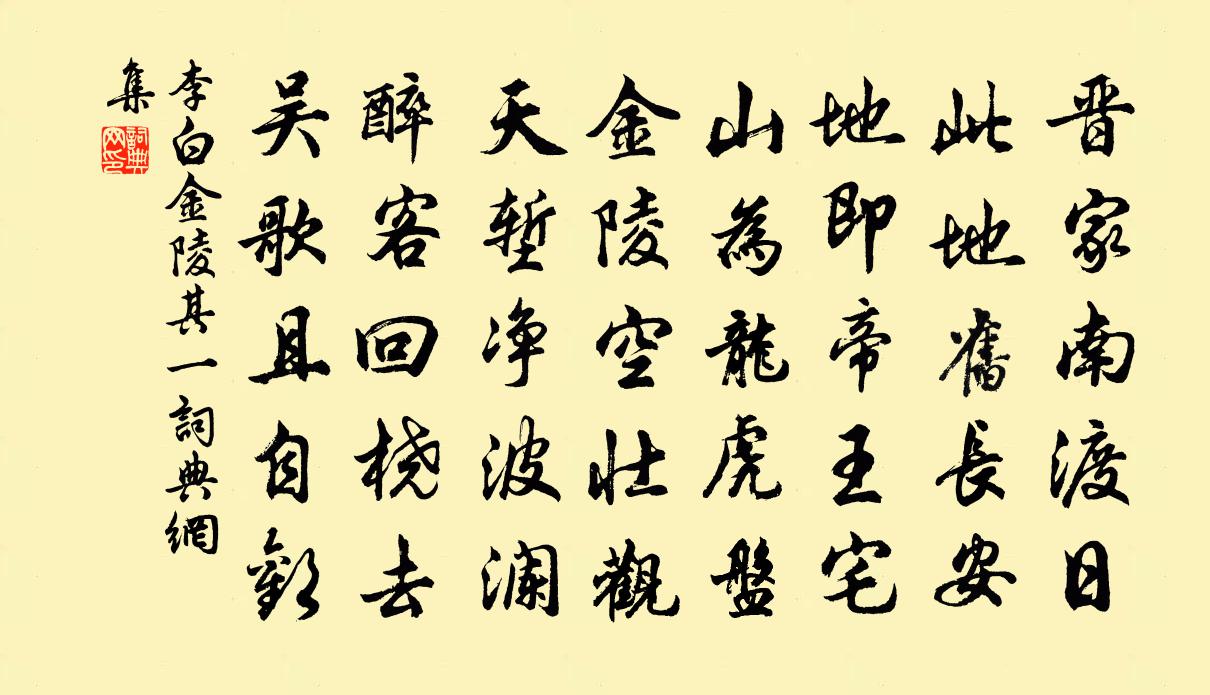 晋家南渡日
此地舊長安
地即帝王宅
山為龍虎盤
金陵空壮觀
天堑净波澜
醉客回桡去
吴歌且自歡
李白金陵其一詞典網
集
詞典网印